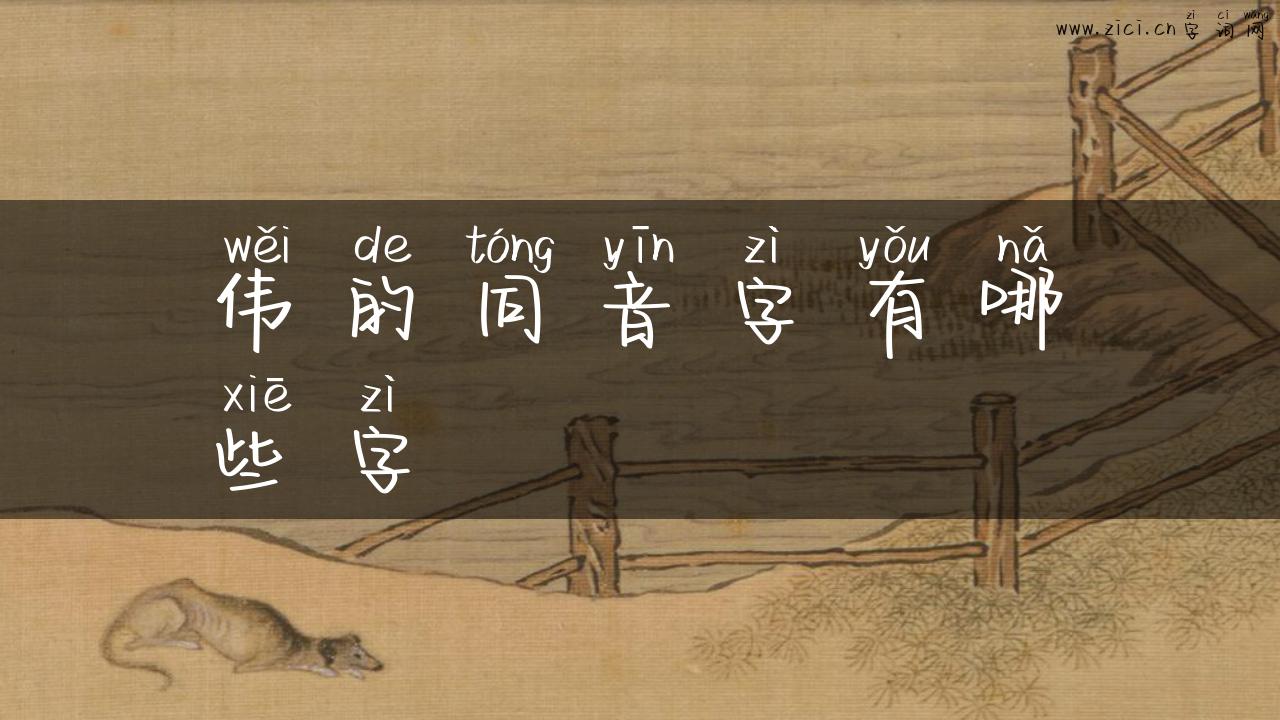 zì cí wǎng
www.zici.cn 字词网
wěi de tóng yīn zì yǒu nǎ
伟的同音字有哪
xiē zì
些字